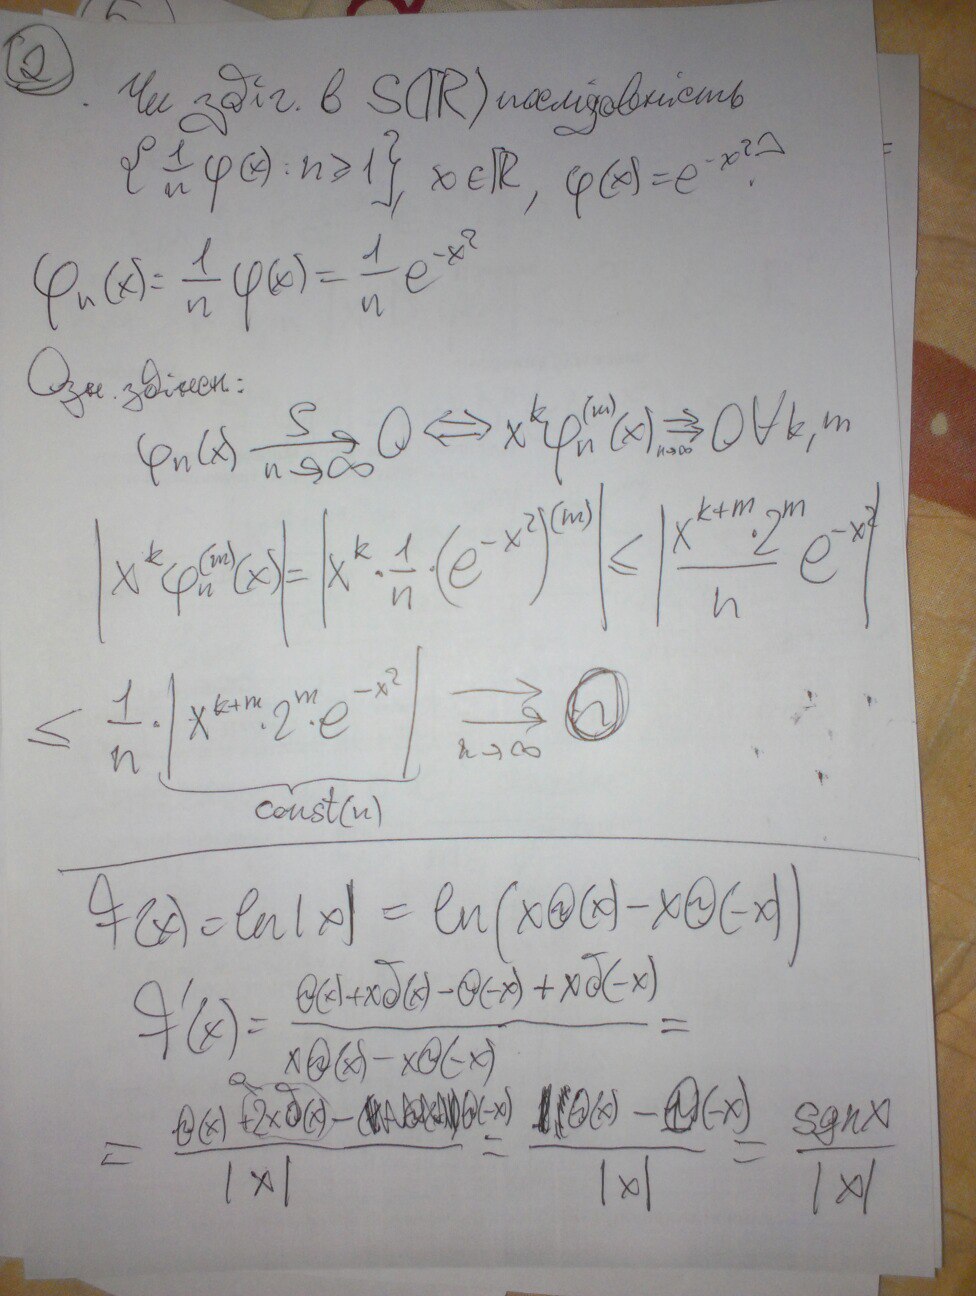 2
. Чи збіг. в S(ℝ) послідовність
{1/n φ(x) : n ≥ 1}, x ∈ ℝ, φ(x) = e^{-x²}?
φₙ(x) = 1/n φ(x) = 1/n e^{-x²}
Озн. збіжн.:
φₙ(x) →^{S}_{n→∞} 0 ⟺ x^k φₙ^{(m)}(x) ⇉_{n→∞} 0 ∀k, m
|x^k φₙ^{(m)}(x)| = |x^k · 1/n · (e^{-x²})^{(m)}| ≤ |x^{k+m} · 2^m / n e^{-x²}|
≤ 1/n · |x^{k+m} · 2^m · e^{-x²}| ⇉_{n→∞} 0
const(n)
F(x) = ln|x| = ln(xθ(x) - xθ(-x))
F'(x) = (θ(x) + xδ(x) - θ(-x) + xδ(-x)) / (xθ(x) - xθ(-x)) =
= (θ(x) + 2xδ(x) - θ(-x)) / |x| = (θ(x) - θ(-x)) / |x| = sgn x / |x|